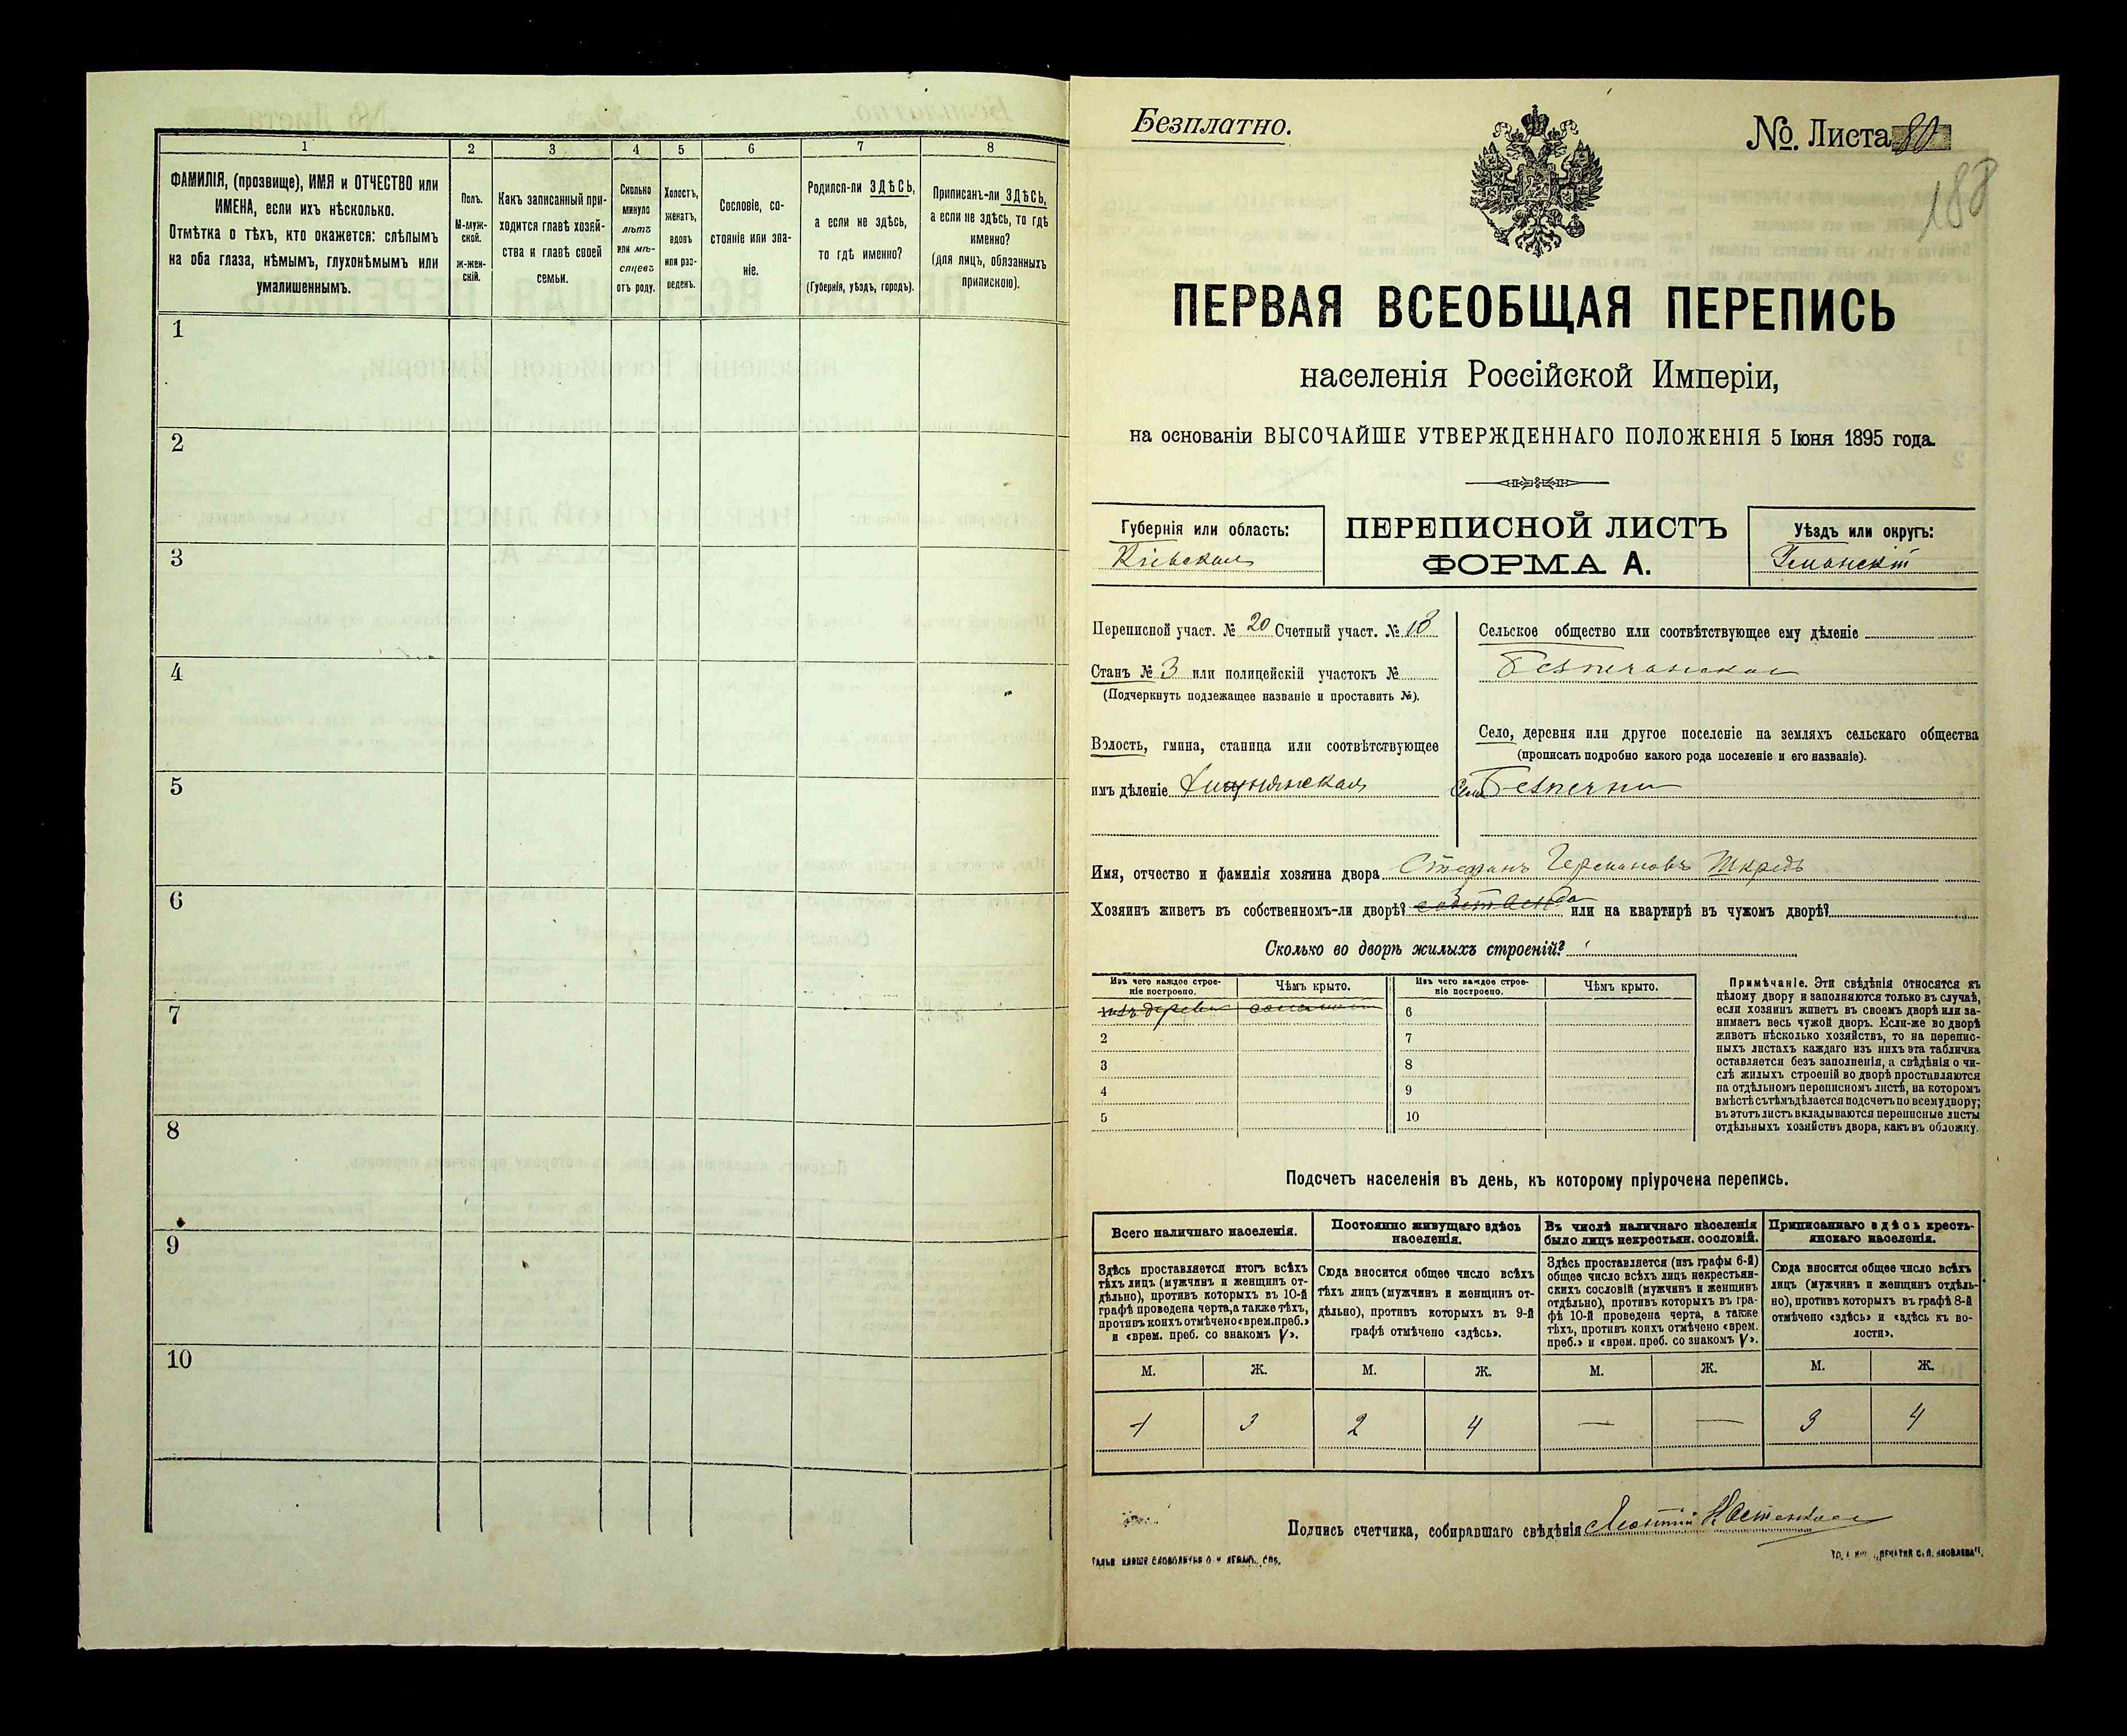 1 2 3 4 5 6 7 8
ФАМИЛІЯ, (прозвище), ИМЯ и ОТЧЕСТВО или
ИМЕНА, если ихъ нѣсколько.
Отмѣтка о тѣхъ, кто окажется: слѣпымъ
на оба глаза, нѣмымъ, глухонѣмымъ или
умалишеннымъ.
Полъ.
М-муж-
ской.
Ж-жен-
скій.
Какъ записанный при-
ходится главѣ хозяй-
ства и главѣ своей
семьи.
Сколько
минуло
лѣтъ
или мѣ-
сяцевъ
отъ роду.
Холостъ,
женатъ,
вдовъ
или раз-
веденъ.
Сословіе, со-
стояніе или зва-
ніе.
Родился-ли ЗДѢСЬ,
а если не здѣсь,
то гдѣ именно?
(Губернія, уѣздъ, городъ).
Приписанъ-ли ЗДѢСЬ,
а если не здѣсь, то гдѣ
именно?
(для лицъ, обязанныхъ
припискою).
1
2
3
4
5
6
7
8
9
10
Безплатно.
№. Листа 80
188
ПЕРВАЯ ВСЕОБЩАЯ ПЕРЕПИСЬ
населенія Россійской Имперіи,
на основаніи ВЫСОЧАЙШЕ УТВЕРЖДЕННАГО ПОЛОЖЕНІЯ 5 Іюня 1895 года.
Губернія или область:
Кіевская
ПЕРЕПИСНОЙ ЛИСТЪ
ФОРМА А.
Уѣздъ или округъ:
Уманскій
Переписной участ. № 20 Счетный участ. № 18
Станъ № 3 или полицейскій участокъ №
(Подчеркнуть подлежащее названіе и проставить №).
Волость, гмина, станица или соотвѣтствующее
имъ дѣленіе
Сельское общество или соотвѣтствующее ему дѣленіе
Безпечанское
Село, деревня или другое поселеніе на земляхъ сельскаго общества
(прописать подробно какого рода поселеніе и его названіе).
Село Безпечна
Имя, отчество и фамилія хозяина двора Стефанъ Германовъ
Хозяинъ живетъ въ собственномъ-ли дворѣ? да или на квартирѣ въ чужомъ дворѣ?
Сколько во дворѣ жилыхъ строеній?
Изъ чего каждое строе-
ніе построено.
Чѣмъ крыто.
Изъ чего каждое строе-
ніе построено.
Чѣмъ крыто.
изъ дерева соломою
6
2 7
3 8
4 9
5 10
Примѣчаніе. Эти свѣдѣнія относятся къ
цѣлому двору и заполняются только въ случаѣ,
если хозяинъ живетъ въ своемъ дворѣ или за-
нимаетъ весь чужой дворъ. Если-же во дворѣ
живетъ нѣсколько хозяйствъ, то на перепис-
ныхъ листахъ каждаго изъ нихъ эта табличка
оставляется безъ заполненія, а свѣдѣнія о чи-
слѣ жилыхъ строеній во дворѣ проставляются
на отдѣльномъ переписномъ листѣ, на которомъ
вмѣстѣ съ тѣмъ дѣлается подсчетъ по всему двору;
въ этотъ листъ вкладываются переписные листы
отдѣльныхъ хозяйствъ двора, какъ въ обложку.
Подсчетъ населенія въ день, къ которому пріурочена перепись.
Всего наличнаго населенія.
Постоянно живущаго здѣсь
населенія.
Въ числѣ наличнаго населенія
было лицъ некрестьян. сословій.
Приписаннаго здѣсь кресть-
янскаго населенія.
Здѣсь проставляется итогъ всѣхъ
тѣхъ лицъ (мужчинъ и женщинъ от-
дѣльно), противъ которыхъ въ 10-й
графѣ проведена черта, а также тѣхъ,
противъ коихъ отмѣчено «врем. преб.»
и «врем. преб. со знакомъ V».
Сюда вносится общее число всѣхъ
тѣхъ лицъ (мужчинъ и женщинъ от-
дѣльно), противъ которыхъ въ 9-й
графѣ отмѣчено «здѣсь».
Здѣсь проставляется (изъ графы 6-й)
общее число всѣхъ лицъ некрестьян-
скихъ сословій (мужчинъ и женщинъ
отдѣльно), противъ которыхъ въ гра-
фѣ 10-й проведена черта, а также
тѣхъ, противъ коихъ отмѣчено «врем.
преб.» и «врем. преб. со знакомъ V».
Сюда вносится общее число всѣхъ
лицъ (мужчинъ и женщинъ отдѣль-
но), противъ которыхъ въ графѣ 8-й
отмѣчено «здѣсь» и «здѣсь къ во-
лости».
М. Ж. М. Ж. М. Ж. М. Ж.
1 3 2 4 — — 3 4
Подпись счетчика, собиравшаго свѣдѣнія Леонтій